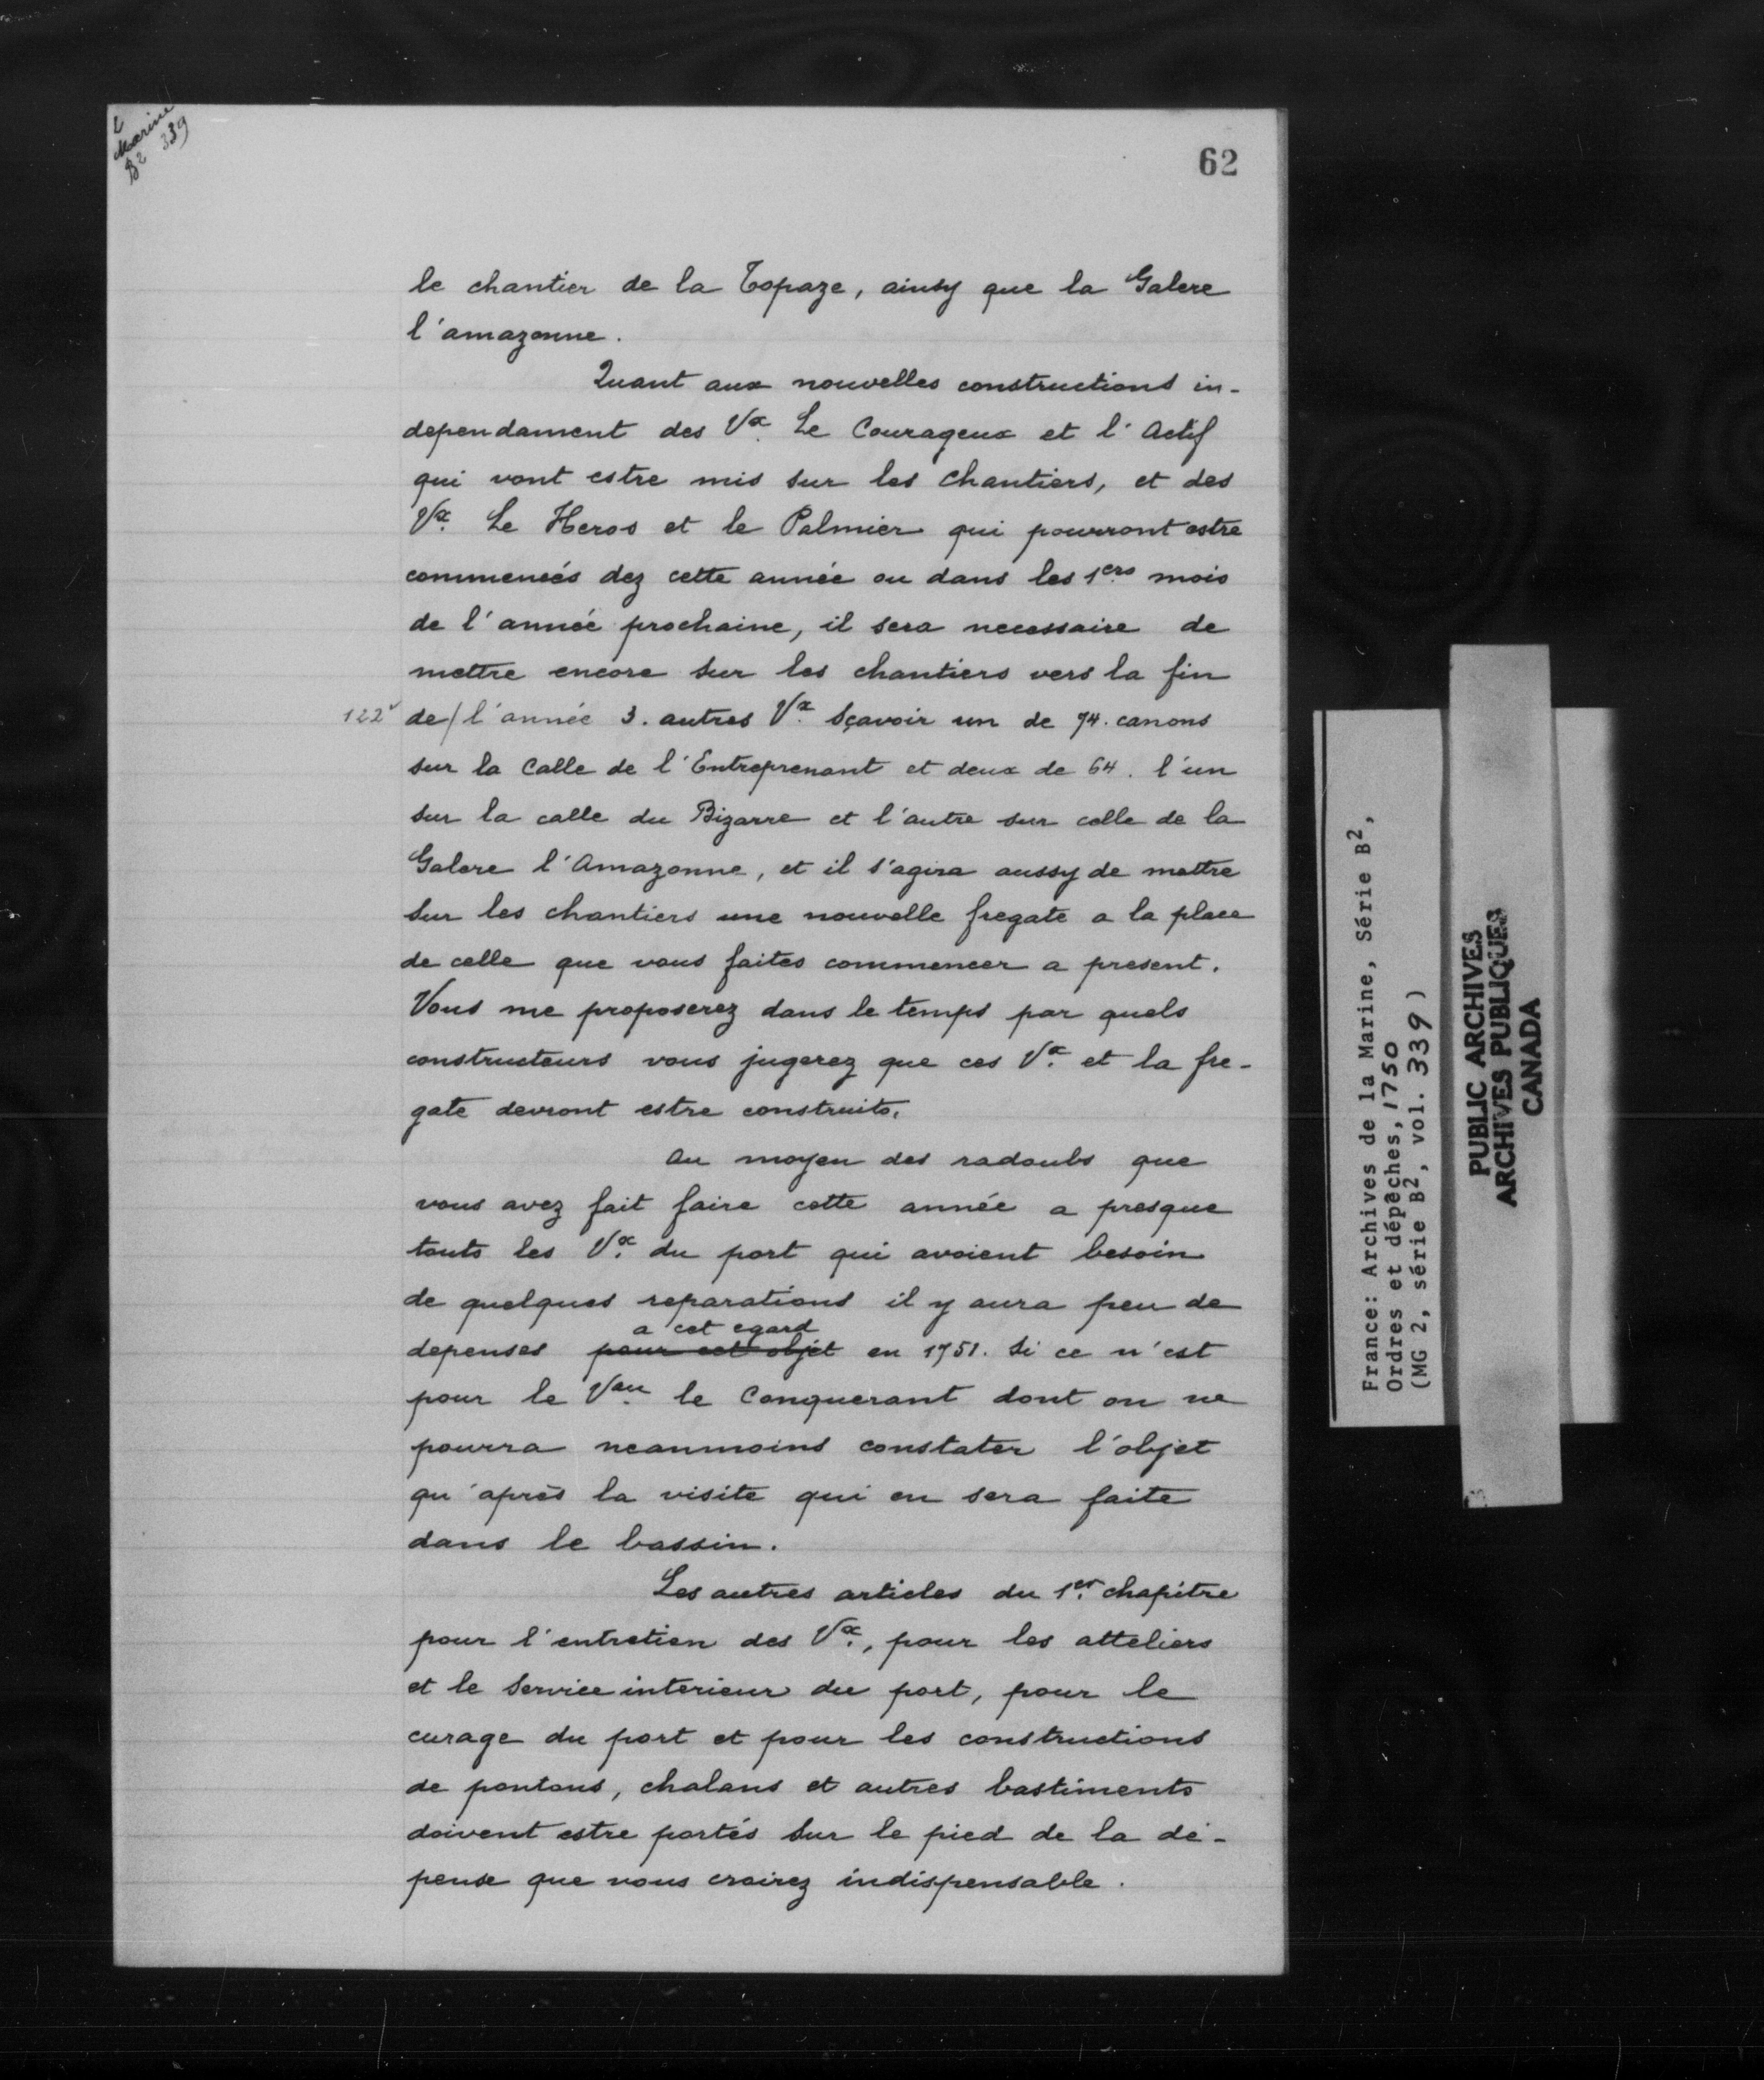 L
Marine
B2 339
62
le chantier de la Topaze, ainsy que la Galere
l'amazonne.
Quant aux nouvelles constructions in-
dependament des Vx. Le Courageux et l'Actif
qui vont estre mis sur les chantiers, et des
Vx. Le Heros et le Palmier qui pourront estre
commencés dez cette année ou dans les 1ers mois
de l'année prochaine, il sera necessaire de
mettre encore sur les chantiers vers la fin
122v de/l'année 3. autres Vx. sçavoir un de 74. canons
sur la Calle de l'Entreprenant et deux de 64. l'un
sur la calle du Bizarre et l'autre sur celle de la
Galere l'Amazonne, et il s'agira aussy de mettre
sur les chantiers une nouvelle fregate a la place
de celle que vous faites commencer a present.
Vous me proposerez dans le temps par quels
constructeurs vous jugerez que ces Vx. et la fre-
gate devront estre construits.
Au moyen des radoubs que
vous avez fait faire cette année a presque
touts les Vx. du port qui avoient besoin
de quelques reparations il y aura peu de
a cet egard
depenses pour cet objet en 1751. Si ce n'est
pour le Vau. le Conquerant dont on ne
pourra neanmoins constater l'objet
qu'après la visite qui en sera faite
dans le bassin.
Les autres articles du 1er. chapitre
pour l'entretien des Vx., pour les atteliers
et le service interieur du port, pour le
curage du port et pour les constructions
de pontons, chalans et autres bastiments
doivent estre portés sur le pied de la dé-
pense que vous croirez indispensable.
France: Archives de la Marine, Série B2,
Ordres et dépêches, 1750
(MG 2, série B2, vol. 339)
PUBLIC ARCHIVES
ARCHIVES PUBLIQUES
CANADA